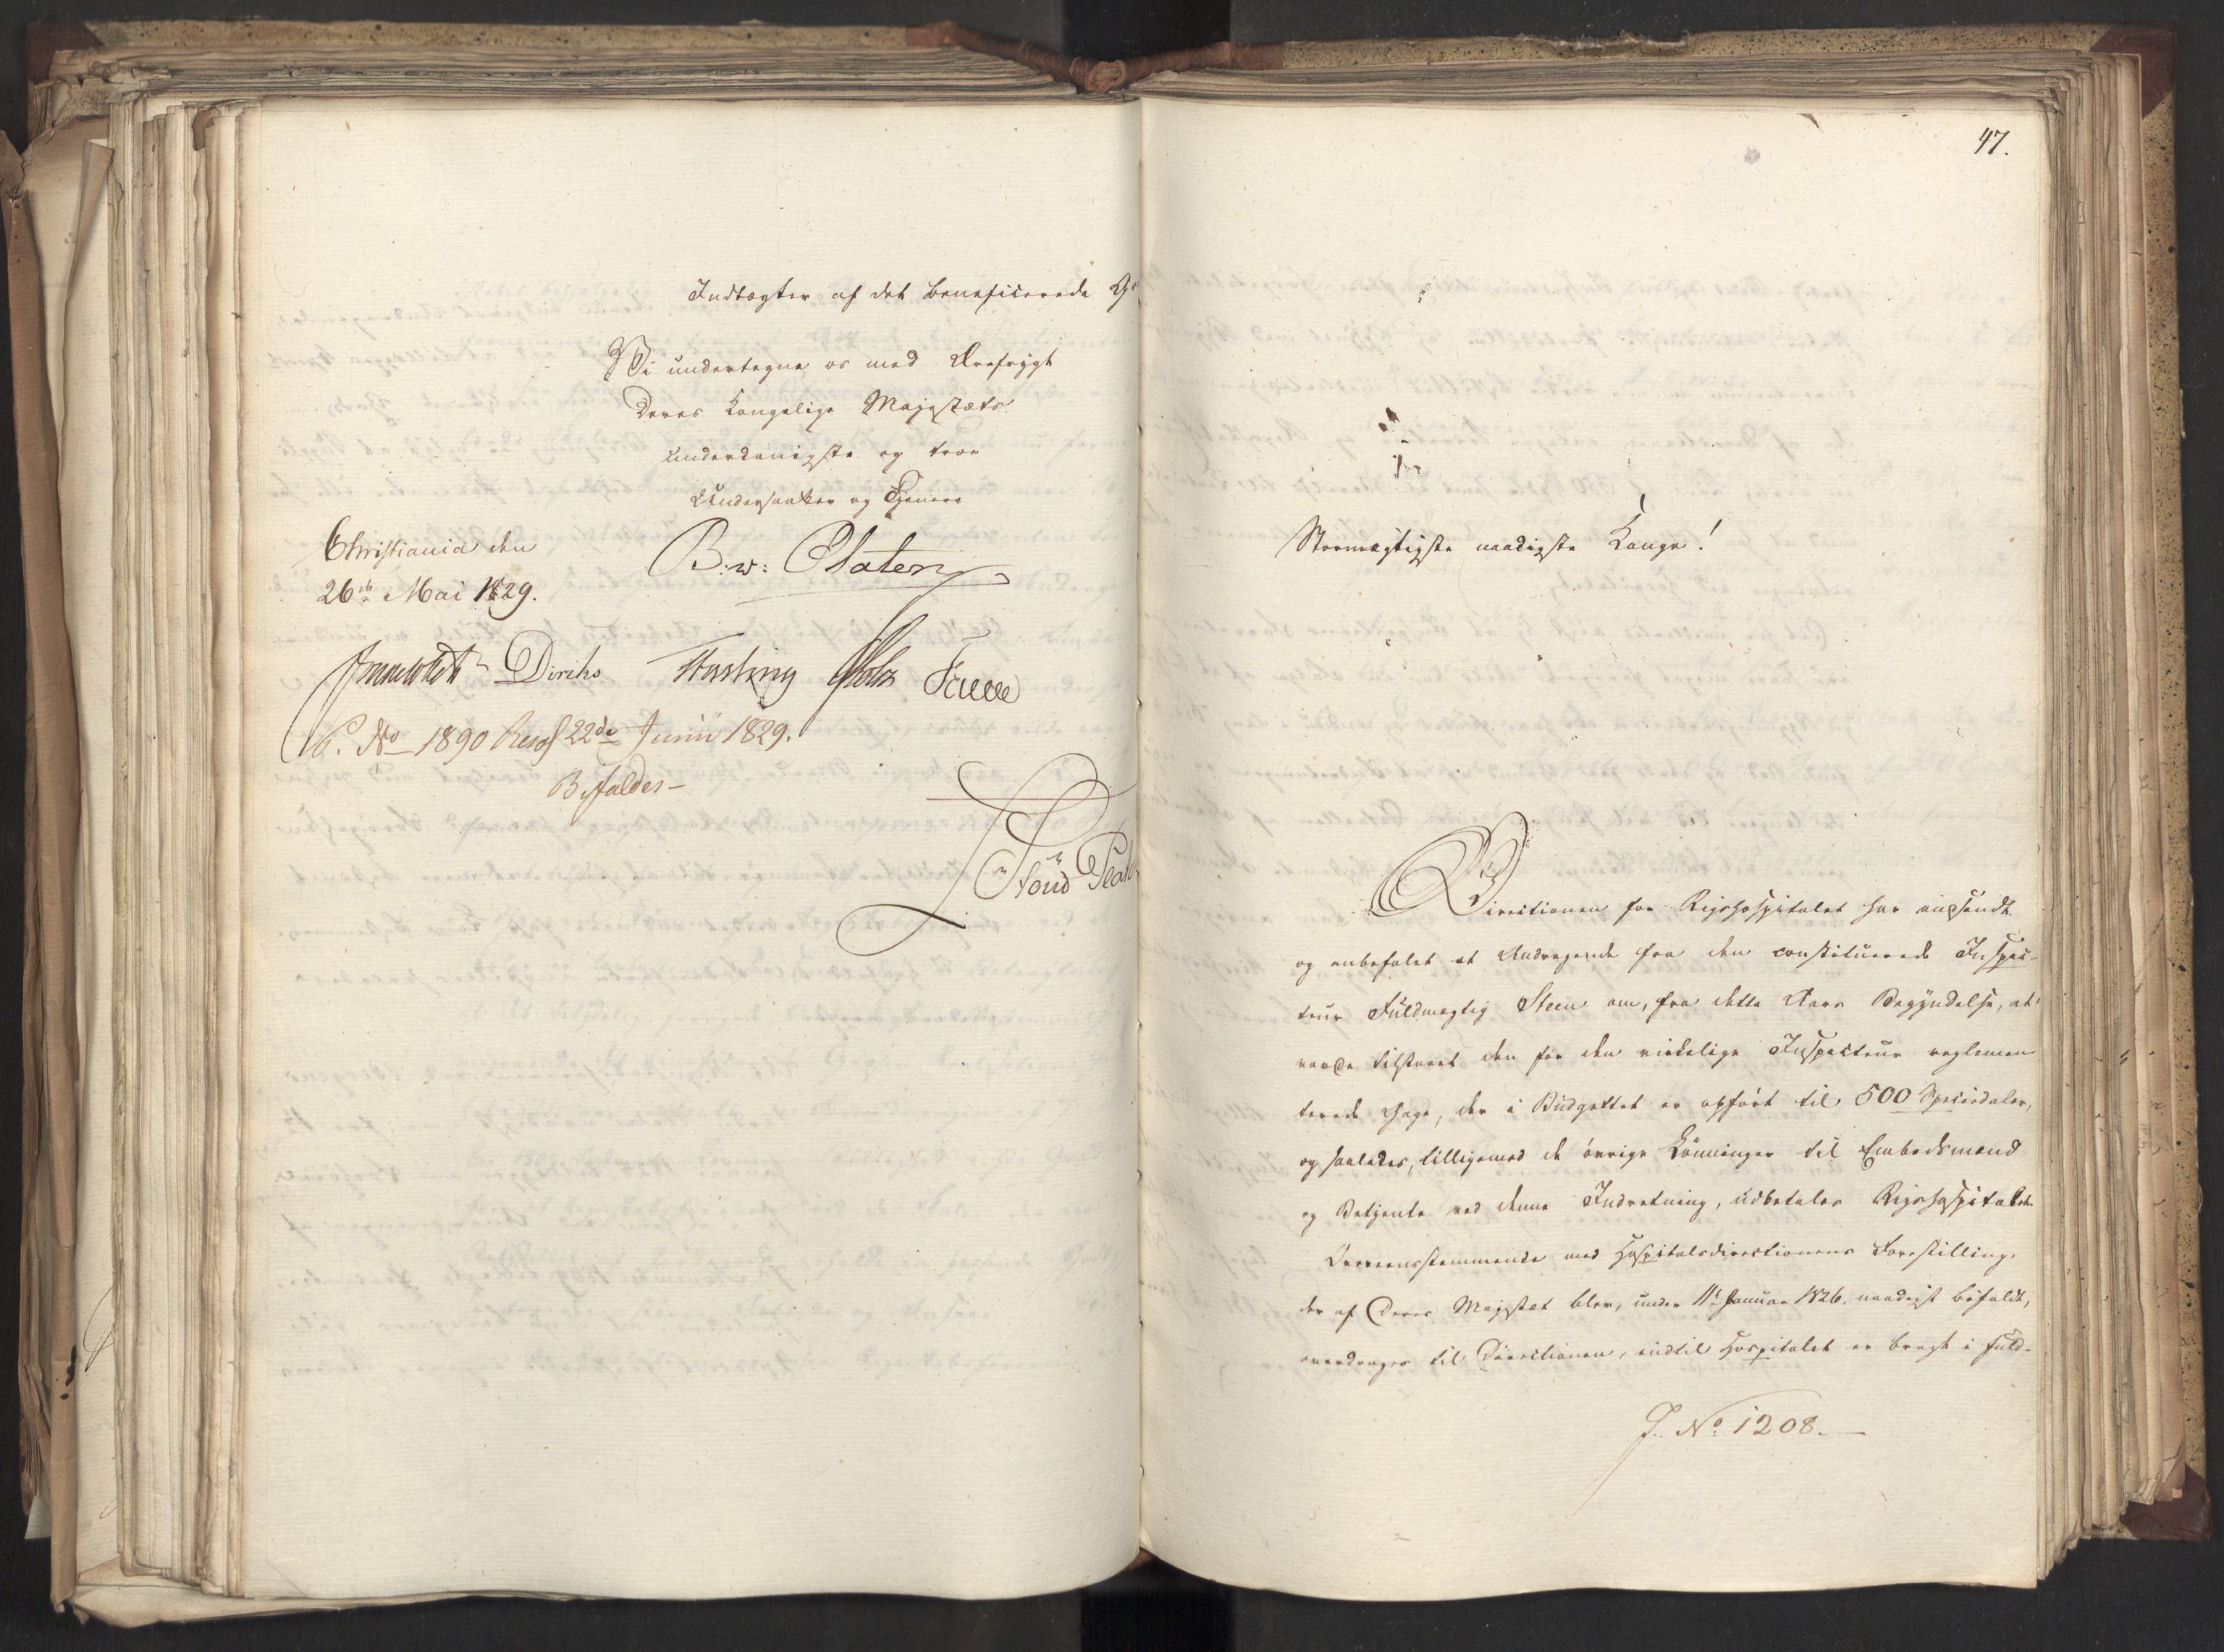 Indtægter af det beneficerede
Vi undertegne os med Ærefrygt
Deres Kongelige Majestæts
underdanigste og troe
Undersaatter og Tjenere
Christiania den
26de Mai 1829.
B: v: Platen
Diriks Fasting Holst
P. No 1890 Resol 22de Junii 1829.
Bifaldes —
47.
Stormægtigste naadigste Konge!
Directionen for Rigshospitalet har indsendt
og anbefalet et Andragende fra den constituerede Inspec-
teur Fuldmægtig Steen om, fra dette Aars Begyndelse, at
vorde tilstaaet den for den virkelige Inspecteur reglemen
terede Gage, der i Budgettet er opført til 500 Speciedaler,
og saaledes, tilligemed de øvrige Lønninger til Embedsmænd
og Betjente ved denne Indretning, udbetales Rigshospitalet.
Overeensstemmende med Hospitalsdirectionens Forestilling,
der af Deres Majestæt blev, under 11te Januar 1826, naadigst bifaldt,
overdroges til Directionen, indtil Hospitalet er bragt i fuld-
J. No 1208. —